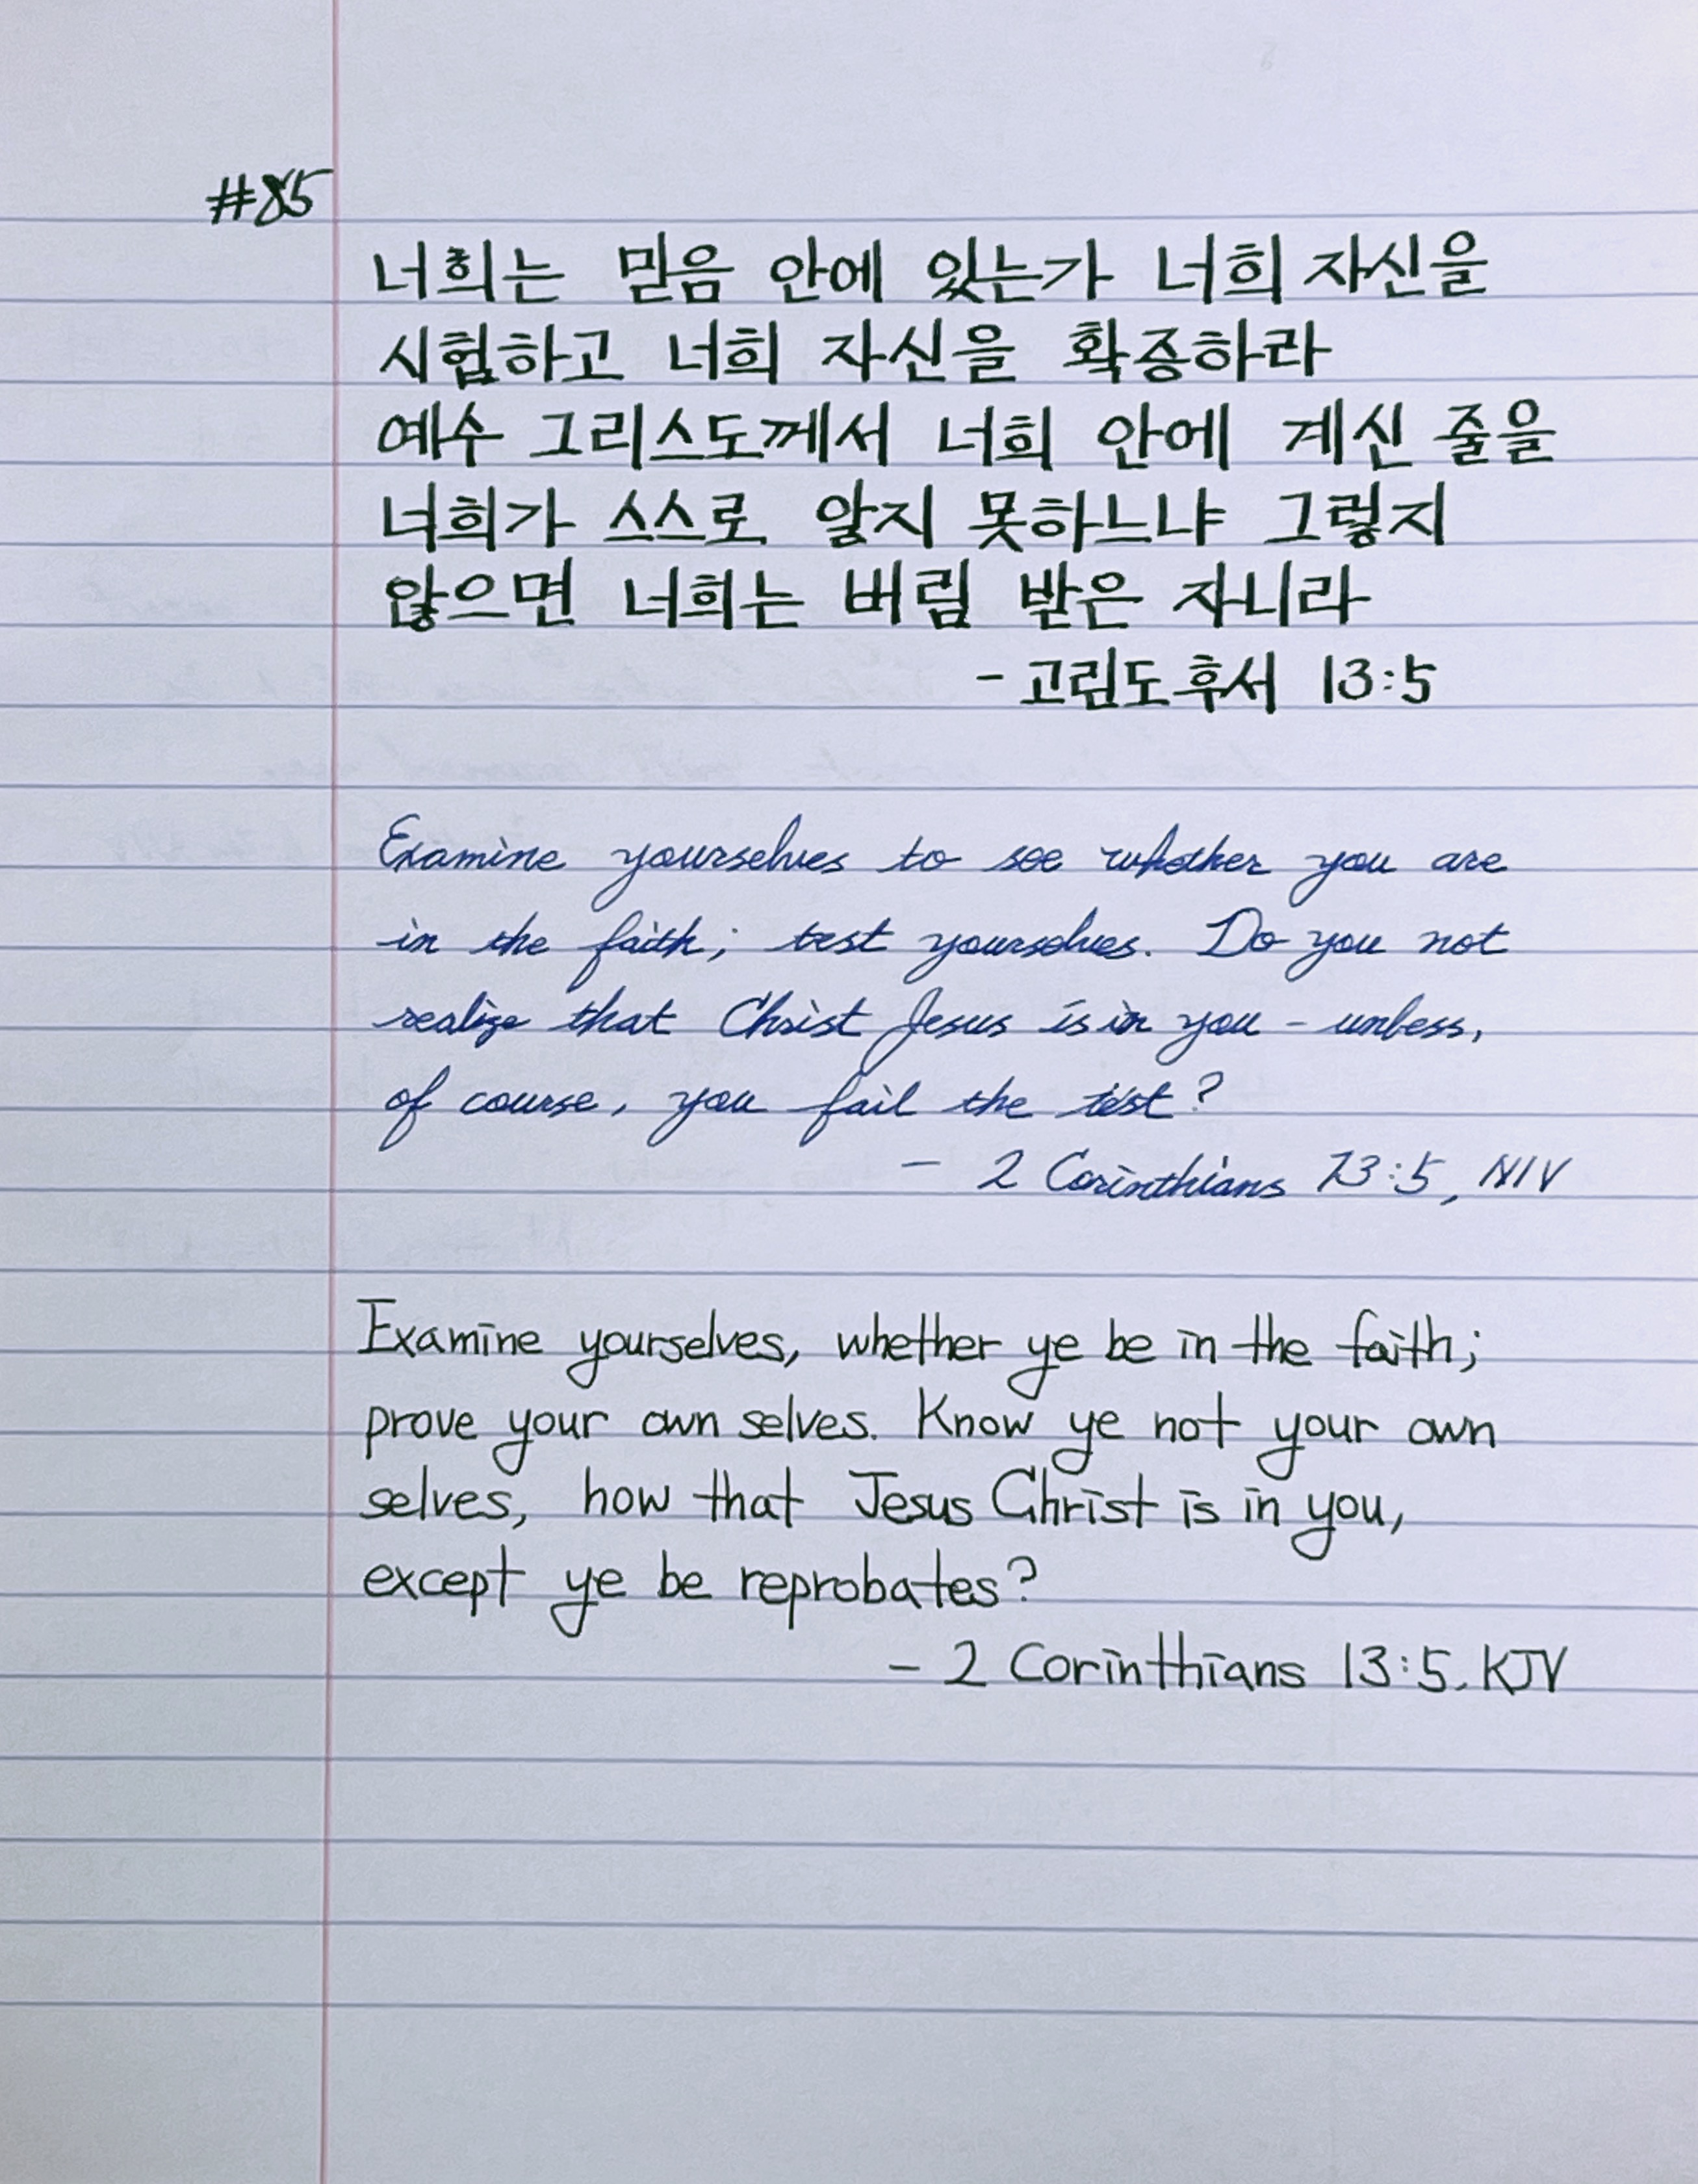 #85
너희는 믿음 안에 있는가 너희 자신을
시험하고 너희 자신을 확증하라
예수 그리스도께서 너희 안에 계신 줄을
너희가 스스로 알지 못하느냐 그렇지
않으면 너희는 버림 받은 자니라
- 고린도후서 13:5
Examine yourselves to see whether you are
in the faith; test yourselves. Do you not
realize that Christ Jesus is in you - unless,
of course, you fail the test?
- 2 Corinthians 13:5, NIV
Examine yourselves, whether ye be in the faith;
prove your own selves. Know ye not your own
selves, how that Jesus Christ is in you,
except ye be reprobates?
- 2 Corinthians 13:5, KJV